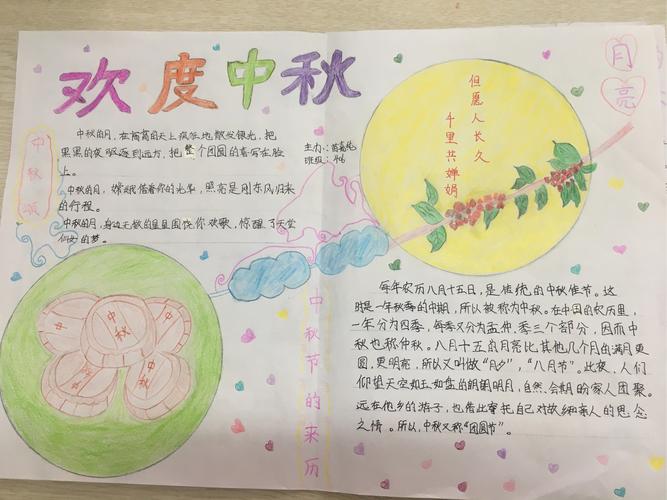 欢度中秋
月亮
中秋颂
中秋的月，在高高的天上疯狂地散发银光，把
黑黑的夜驱逐到远方，把整个团圆的喜写在脸
上。
中秋的月，嫦娥借着你的光华，照亮是刚东风归来
的行程。
中秋的月，身边无数的星星围绕你欢歌，惊醒了天堂
的梦。
主办：
班级：
但愿人长久
千里共婵娟
中秋节的来历
每年农历八月十五日，是传统的中秋佳节。这
时是一年秋季的中期，所以被称为中秋。在中国的农历里，
一年分为四季，每季又分为孟仲季三个部分，因而中
秋也称仲秋。八月十五的月亮比其他几个月的满月更
圆，更明亮，所以又叫做“月夕”，“八月节”。此夜，人们
仰望天空如玉如盘的朗朗明月，自然会期盼家人团聚。
远在他乡的游子，也借此寄托自己对故乡和亲人的思念
之情。所以，中秋又称“团圆节”。
中秋
中
中
秋
中秋